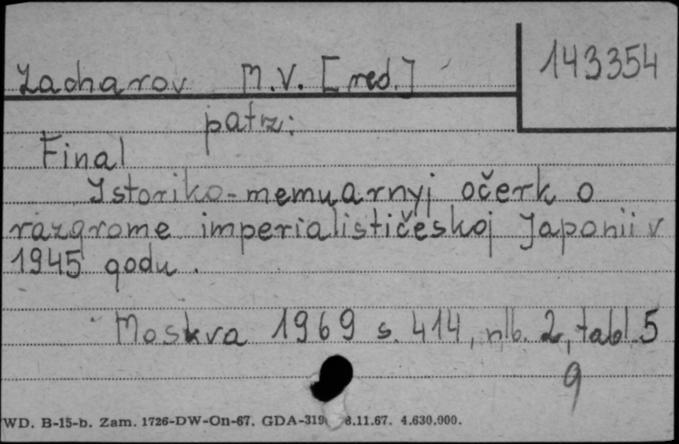 Zacharov M.V. [red.]
143354
patrz:
Final
Istoriko-memuarnyj očerk o
razgrome imperialističeskoj Japonii v
1945 godu.
Moskva 1969 s. 414, nlb. 2, tabl. 5
9
WD. B-15-b. Zam. 1726-DW-On-67. GDA-319 8.11.67. 4.630.000.